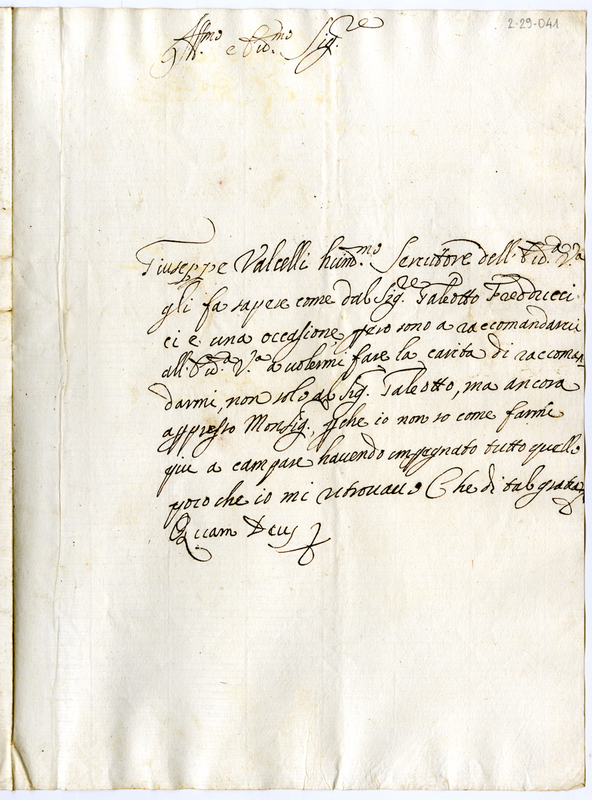 2-29-041
Ill.mo e Rev.mo Sig.re
Giuseppe Valcelli hum.mo Servitore dell. V.a
gli fa sapere come dal Sig.re Galeotto Fredducci
ci è una occasione, però sono a raccomandarmi
all. V.a a volermi fare la carita di raccoman
darmi, non solo al Sig. Galeotto, ma ancora
appresso Monsig., pche io non so come farmi
qui a campare havendo impegnato tutto quello
poco che io mi ritrouauo Che di tal gratia
Quam Deus